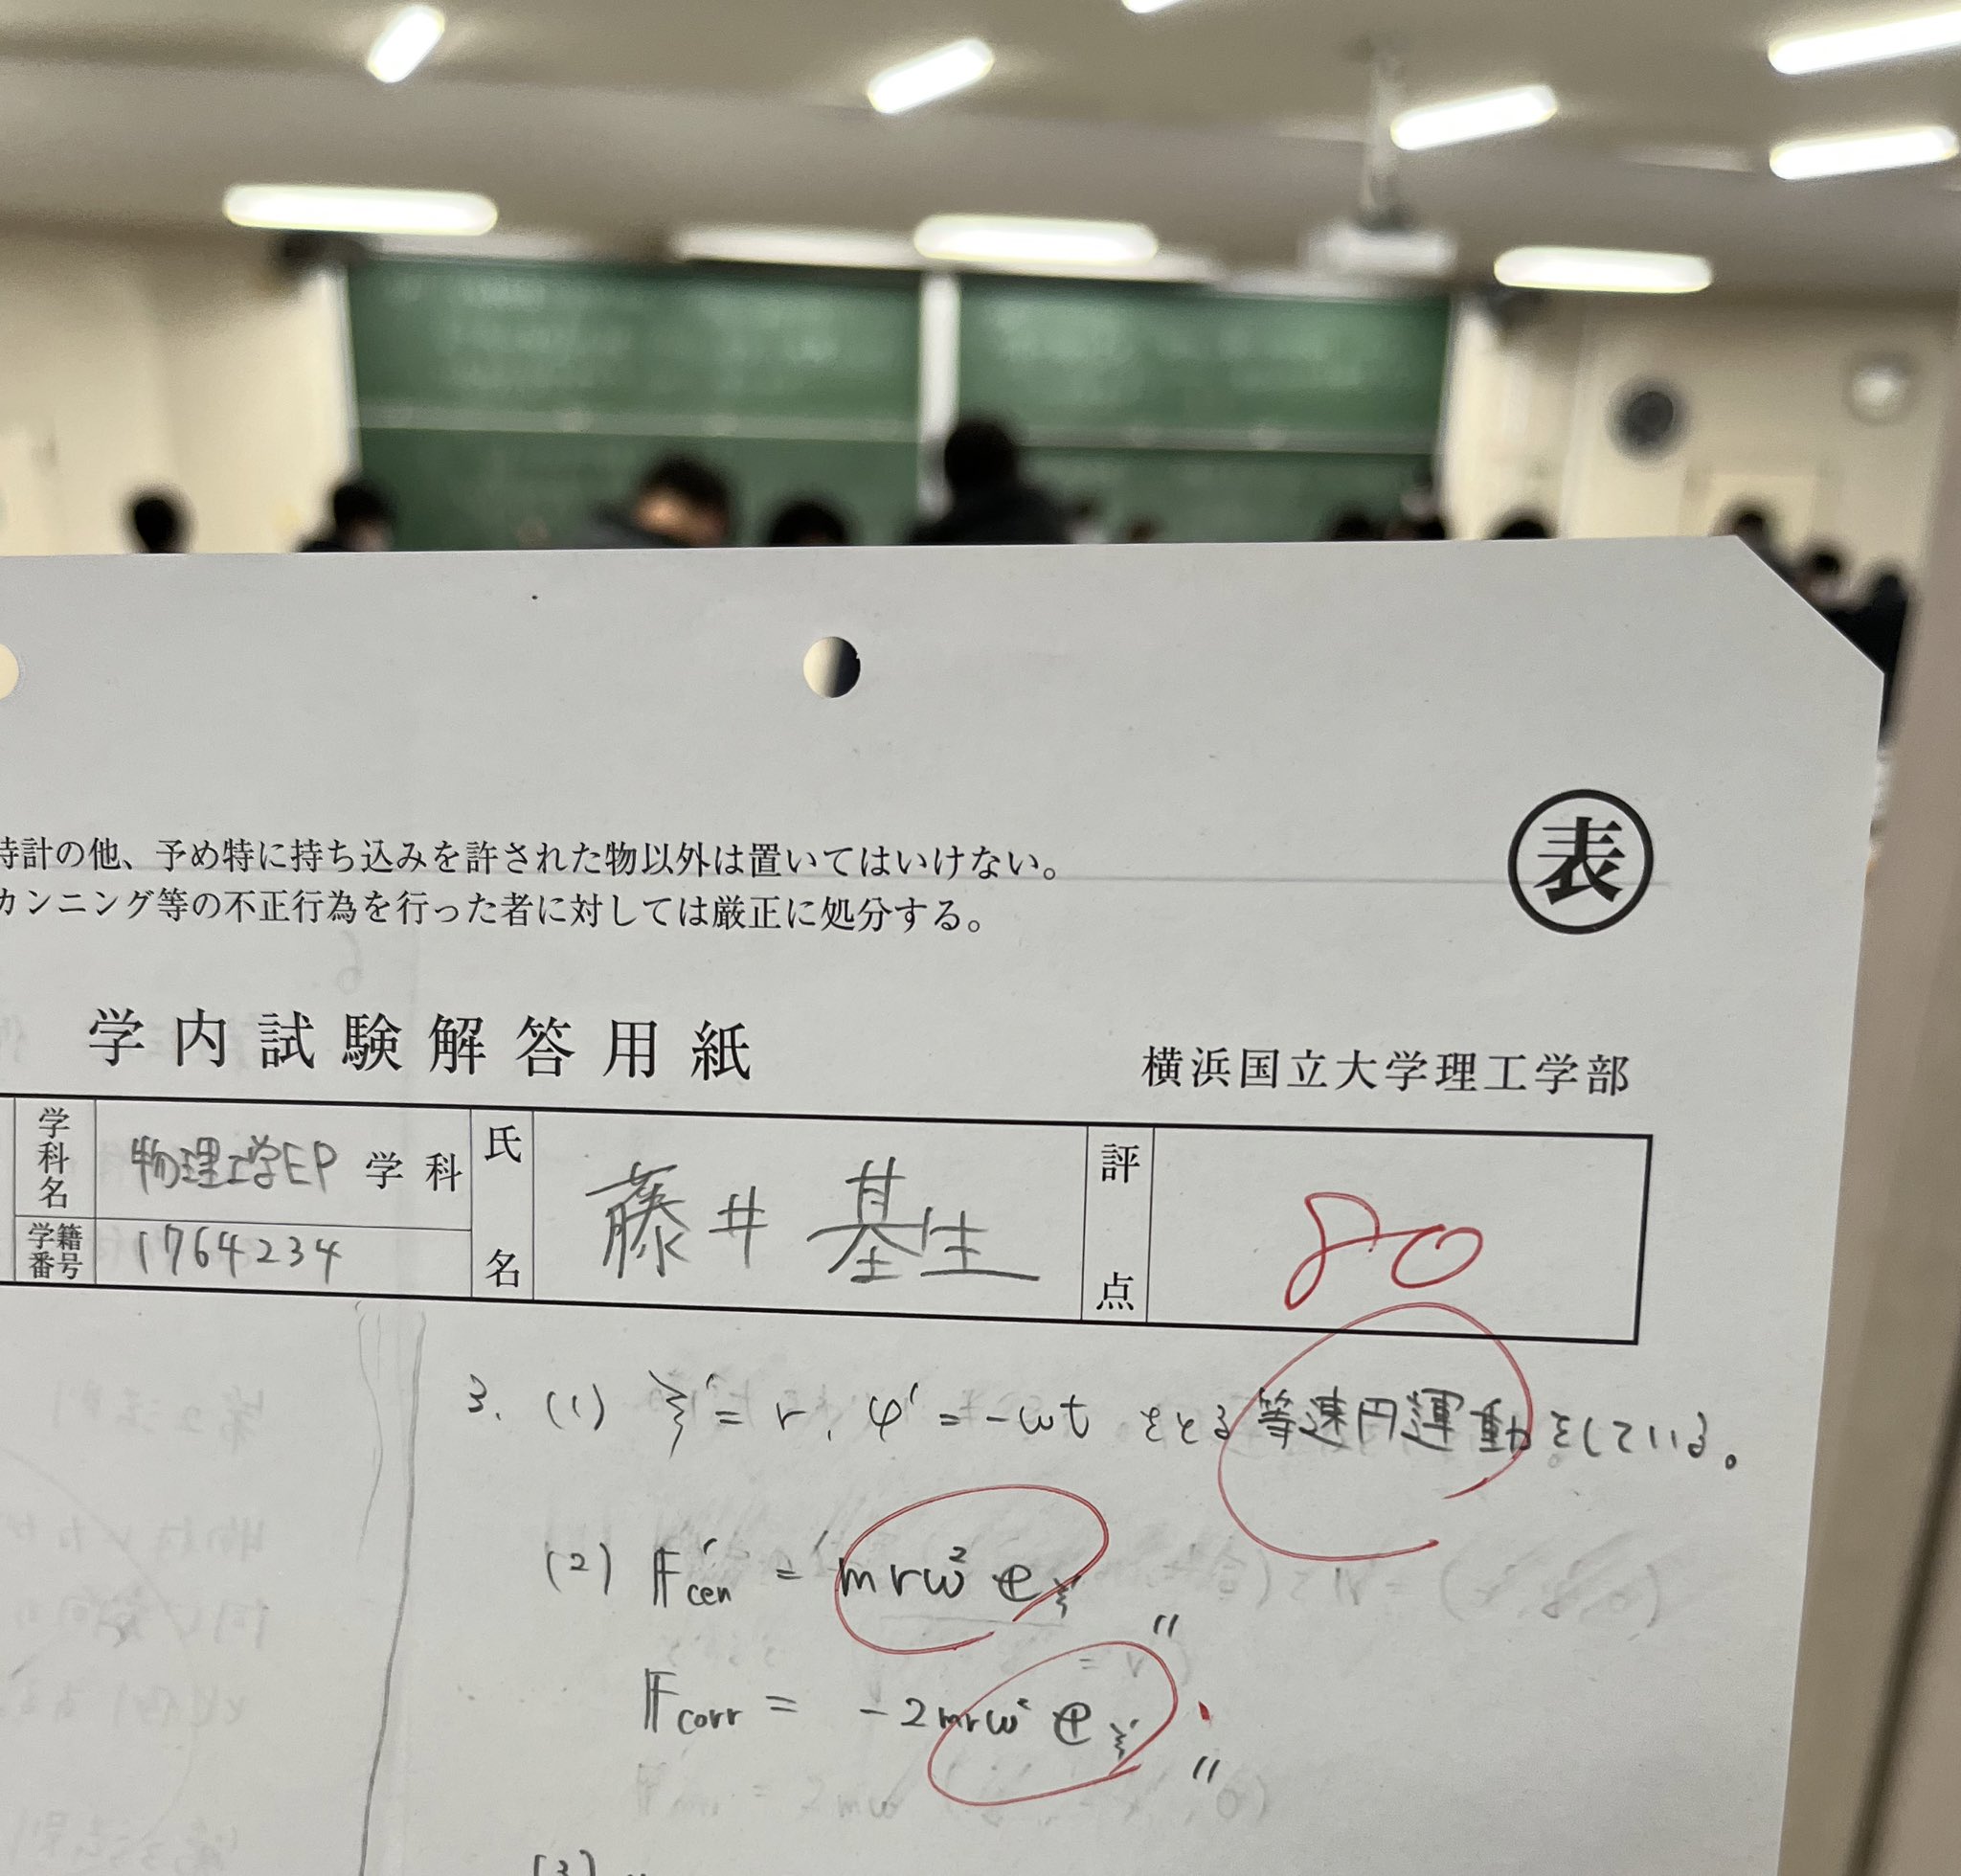 表
時計の他、予め特に持ち込みを許された物以外は置いてはいけない。
カンニング等の不正行為を行った者に対しては厳正に処分する。
学内試験解答用紙
横浜国立大学理工学部
学科名 物理工学EP 学科
学籍番号 1764234
氏名 藤井 基生
評点 80
3. (1) ξ' = r, φ' = -ωt をとる等速円運動をしている。
(2) F'cen = mrω² eξ' 〃
Fcorr = -2mrω² eξ' 〃
(3)